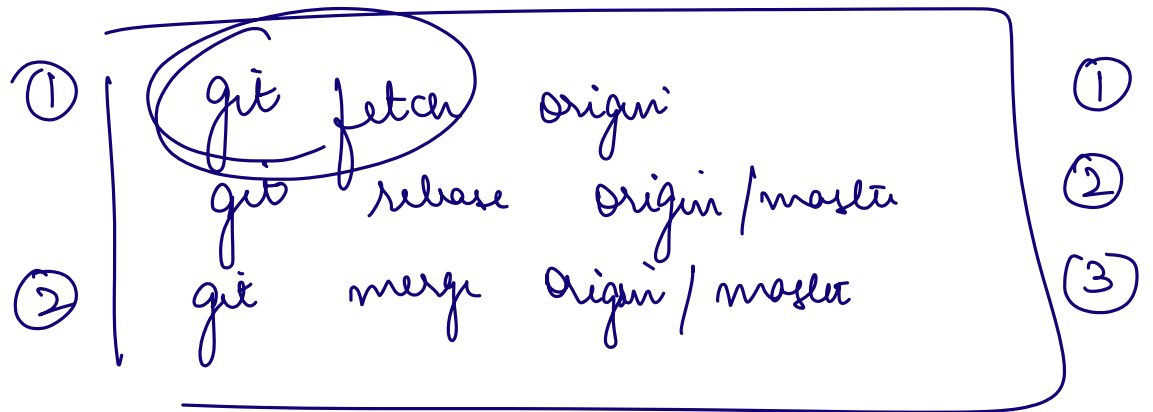 ① git fetch origin ①
git rebase origin/master ②
② git merge origin/master ③